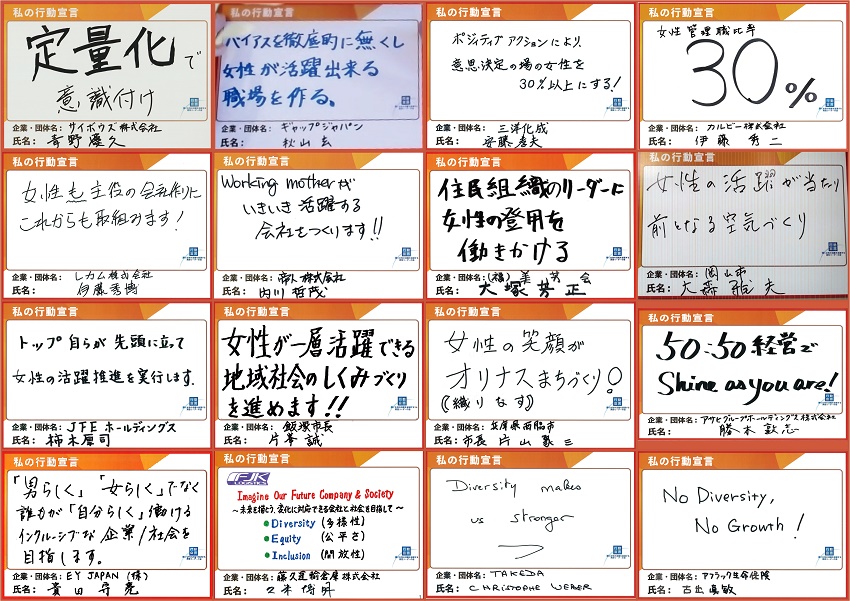 私の行動宣言
定量化で
意識付け
企業・団体名： サイボウズ株式会社
氏名： 青野慶久
私の行動宣言
バイアスを徹底的に無くし
女性が活躍出来る
職場を作る。
企業・団体名： ギャップジャパン
氏名： 秋山
私の行動宣言
ポジティブアクションにより
意思決定の場の女性を
30%以上にする!
企業・団体名： 三洋化成
氏名： 安藤孝夫
私の行動宣言
女性管理職比率
30%
企業・団体名： カルビー株式会社
氏名： 伊藤秀二
私の行動宣言
女性も主役の会社作りに
これからも取組みます!
企業・団体名： レカム株式会社
氏名： 伊藤秀博
私の行動宣言
Working motherが
いきいき活躍する
会社をつくります!!
企業・団体名： 帝人株式会社
氏名： 内川哲茂
私の行動宣言
住民組織のリーダーに
女性の登用を
働きかける
企業・団体名： (福)美芳会
氏名： 大塚芳正
女性の活躍が当たり
前となる空気づくり
企業・団体名： 岡山市
氏名： 大森雅夫
私の行動宣言
トップ自らが先頭に立って
女性の活躍推進を実行します.
企業・団体名： JFEホールディングス
氏名： 柿木厚司
私の行動宣言
女性が一層活躍できる
地域社会のしくみづくり
を進めます!!
企業・団体名： 飯塚市長
氏名： 片峯誠
私の行動宣言
女性の笑顔が
オリナスまちづくり!
(織りなす)
企業・団体名： 兵庫県西脇市
氏名： 市長 片山象三
私の行動宣言
50:50経営で
Shine as you are!
企業・団体名： アサヒグループホールディングス株式会社
氏名： 勝木敦志
私の行動宣言
「男らしく」「女らしく」でなく
誰もが「自分らしく」働ける
インクルーシブな企業/社会を
目指します。
企業・団体名： EY JAPAN (株)
氏名： 貴田守亮
私の行動宣言
FJK
LOGISTICS
Imagine Our Future Company & Society
～未来を描こう、変化に対応できる会社と社会を目指して～
●Diversity (多様性)
●Equity (公平さ)
●Inclusion (開放性)
企業・団体名： 藤久運輸倉庫株式会社
氏名： 久米博明
私の行動宣言
Diversity makes
us stronger
企業・団体名： TAKEDA
氏名： CHRISTOPHE WEBER
私の行動宣言
No Diversity,
No Growth!
企業・団体名： アフラック生命保険
氏名： 古出眞敏